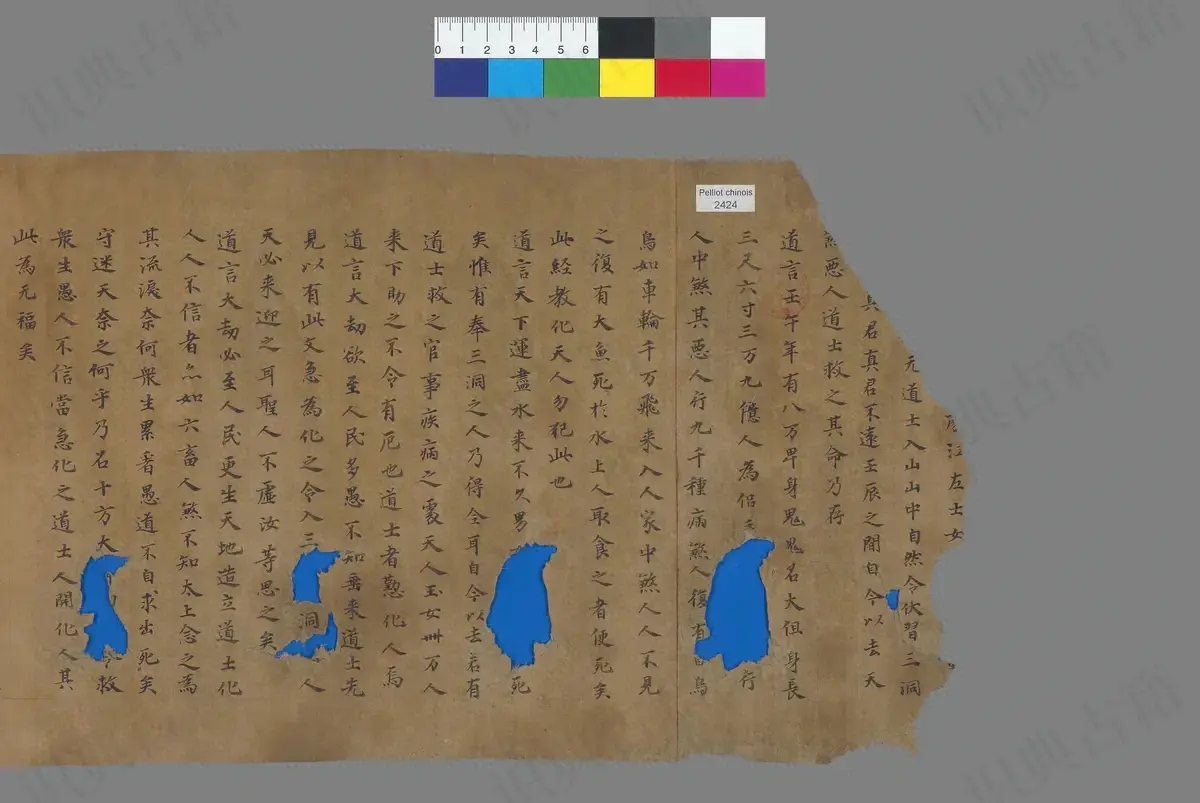 江左士女
无道士入山山中自然令伏習三洞
真君真君不遠壬辰之間自今以去天
惡人道士救之其命乃存
道言壬午年有八万卑身鬼鬼名大伹身長
三尺六寸三万九億人為侶 行
人中煞其惡人行九千種病煞人復有 鳥
鳥如車輪千万飛来入人家中煞人人不見
之復有大魚死於水上人取食之者便死矣
此経教化天人勿犯此也
道言天下運盡水来不久男 死
矣惟有奉三洞之人乃得全耳自今以去若有
道士救之官事疾病之處天人玉女卌万人
来下助之不令有厄也道士者懃化人焉
道言大劫欲至人民多愚不知垂来道士先
見以有此文急為化之令入三洞 人
天必来迎之耳聖人不虛汝等思之矣
道言大劫必至人民更生天地造立道士化
人人不信者亦如六畜人煞不知太上念之為
其流淚奈何衆生累著愚道不自求出死矣
守迷天奈之何乎乃名十方大 救
衆生愚人不信當急化之道士人開化人其
此為无福矣
Pelliot chinois
2424
0 1 2 3 4 5 6